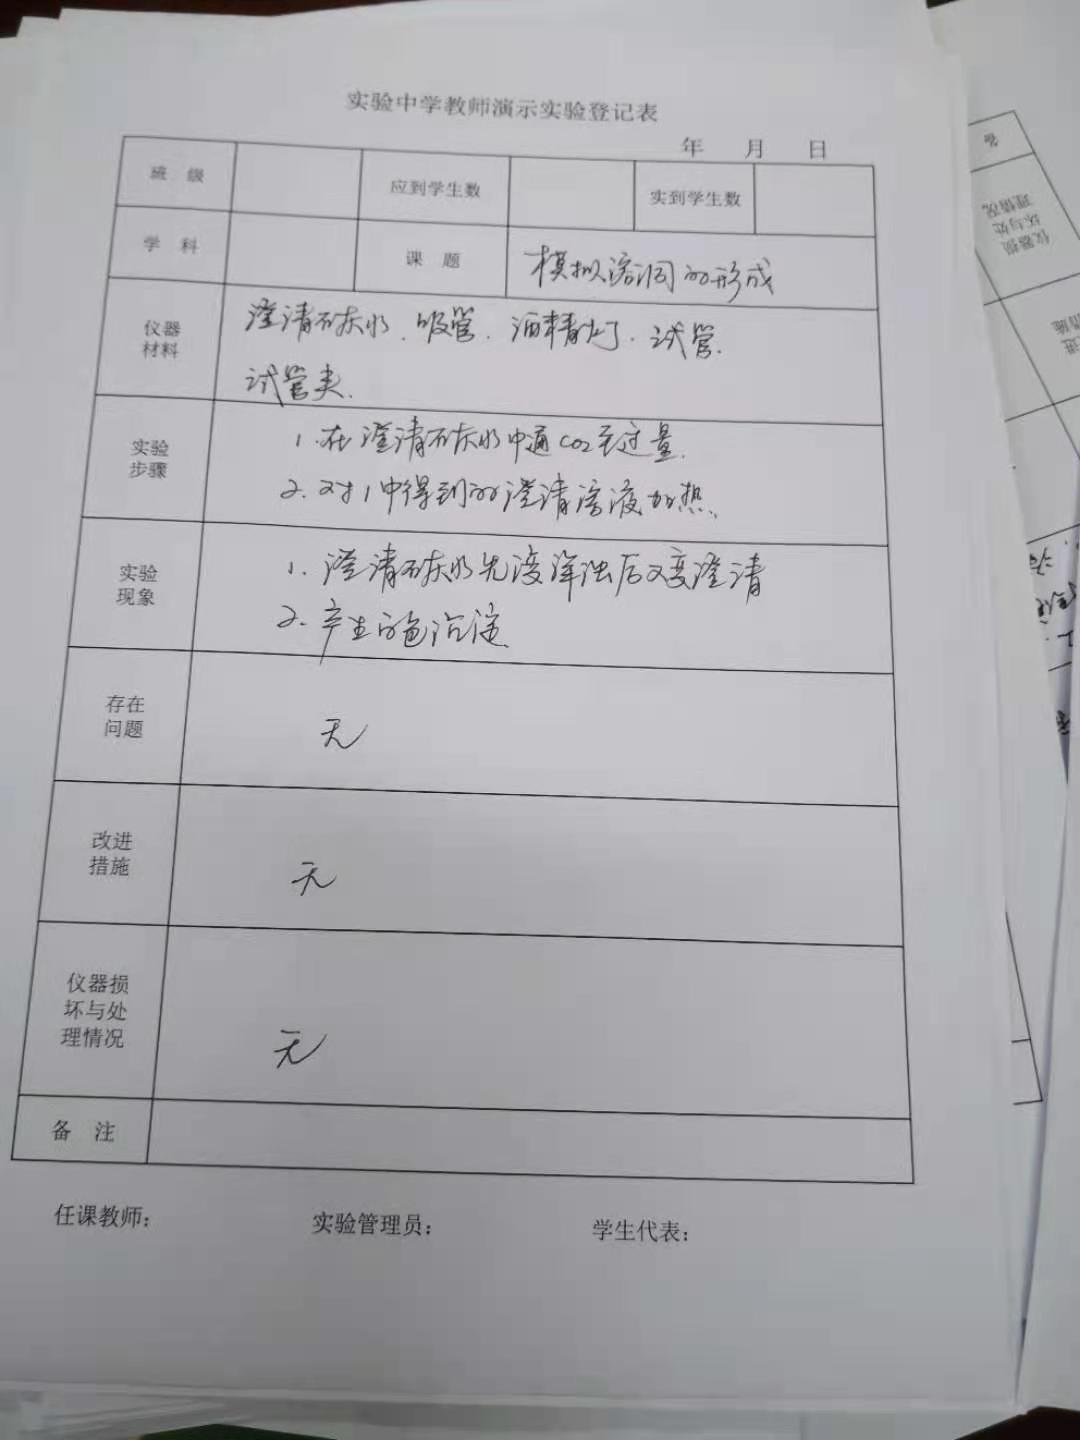 实验中学教师演示实验登记表
年 月 日
班 级 应到学生数 实到学生数
学 科 课 题 模拟溶洞的形成
仪器
材料
澄清石灰水、吸管、酒精灯、试管、
试管夹.
实验
步骤
1. 在澄清石灰水中通CO2至过量.
2. 对1中得到的澄清溶液加热.
实验
现象
1. 澄清石灰水先变浑浊后又变澄清
2. 产生白色沉淀.
存在
问题
无
改进
措施
无
仪器损
坏与处
理情况
无
备 注
任课教师: 实验管理员: 学生代表:
仪器损
坏与处
理情况